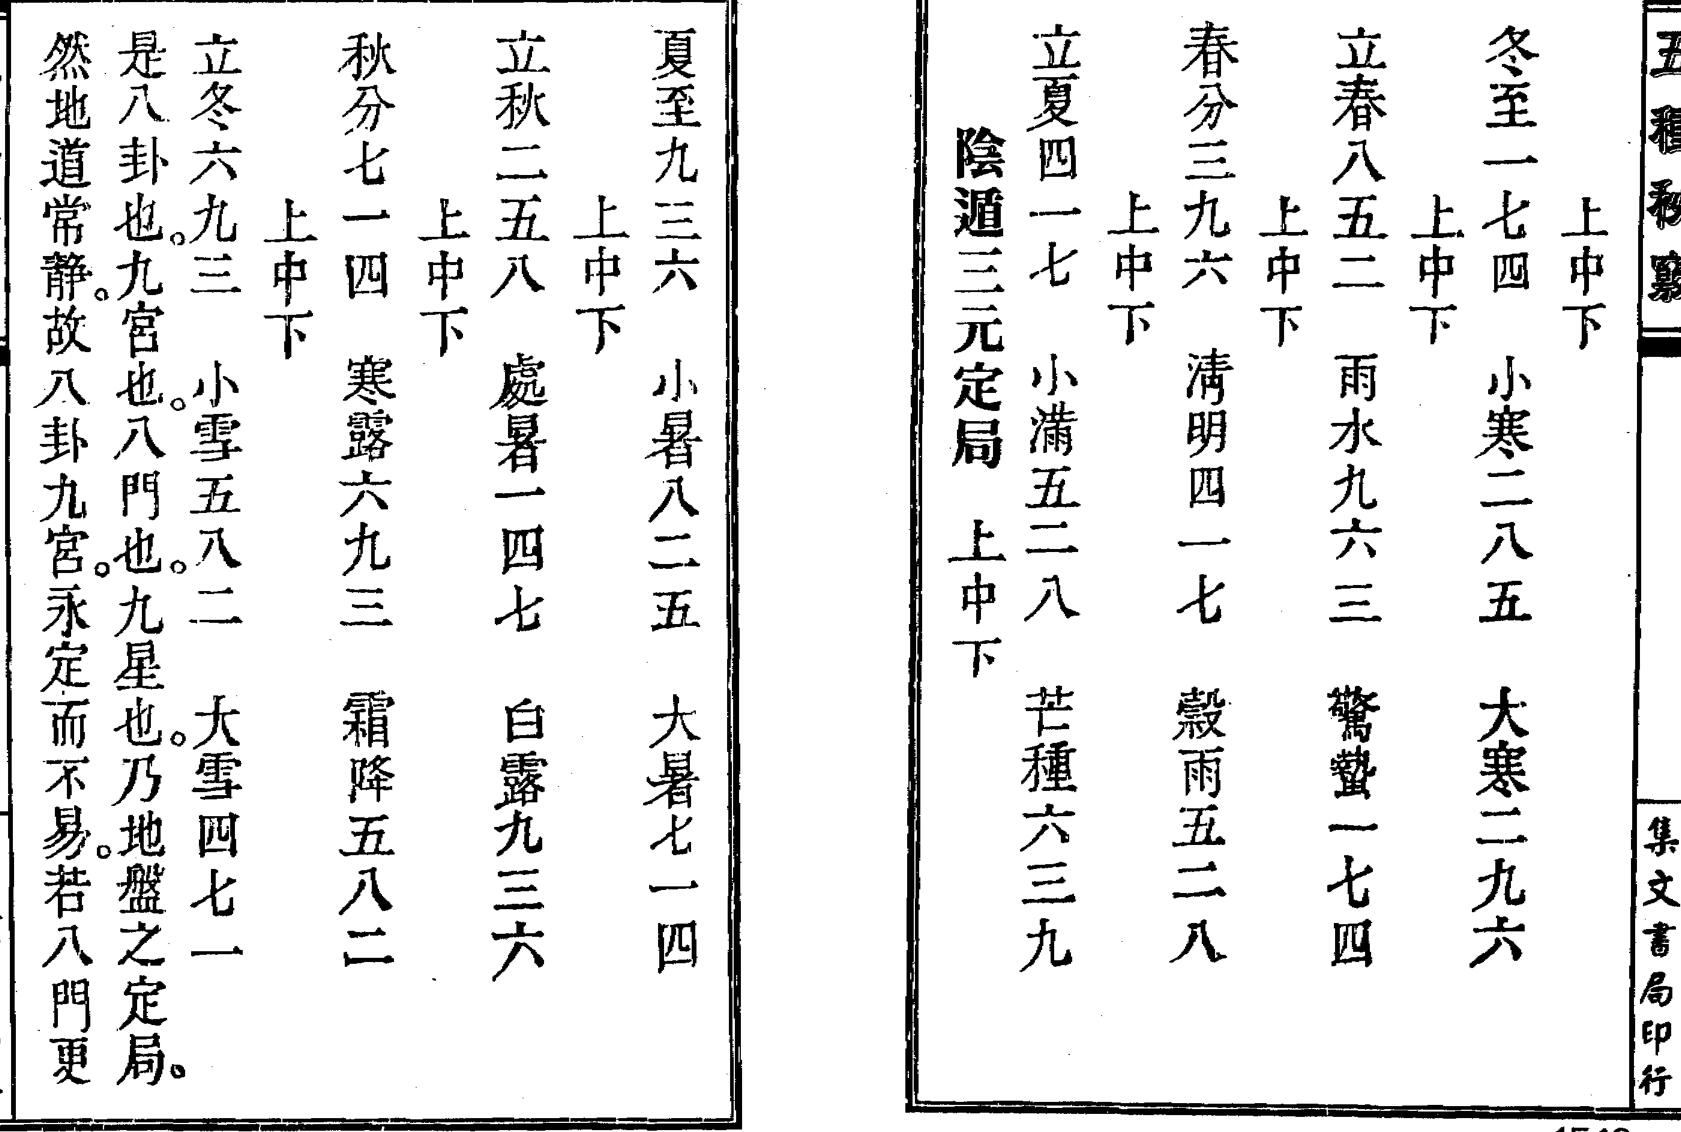 五種秘竅
集文書局印行
上中下
冬至一七四　小寒二八五　大寒二九六
上中下
立春八五二　雨水九六三　驚蟄一七四
上中下
春分三九六　清明四一七　穀雨五二八
上中下
立夏四一七　小滿五二八　芒種六三九
陰遁三元定局　上中下
夏至九三六　小暑八二五　大暑七一四
上中下
立秋二五八　處暑一四七　白露九三六
上中下
秋分七一四　寒露六九三　霜降五八二
上中下
立冬六九三　小雪五八二　大雪四七一
是八卦也。九宮也。八門也。九星也。乃地盤之定局。
然地道常靜。故八卦九宮。永定而不易。若八門更